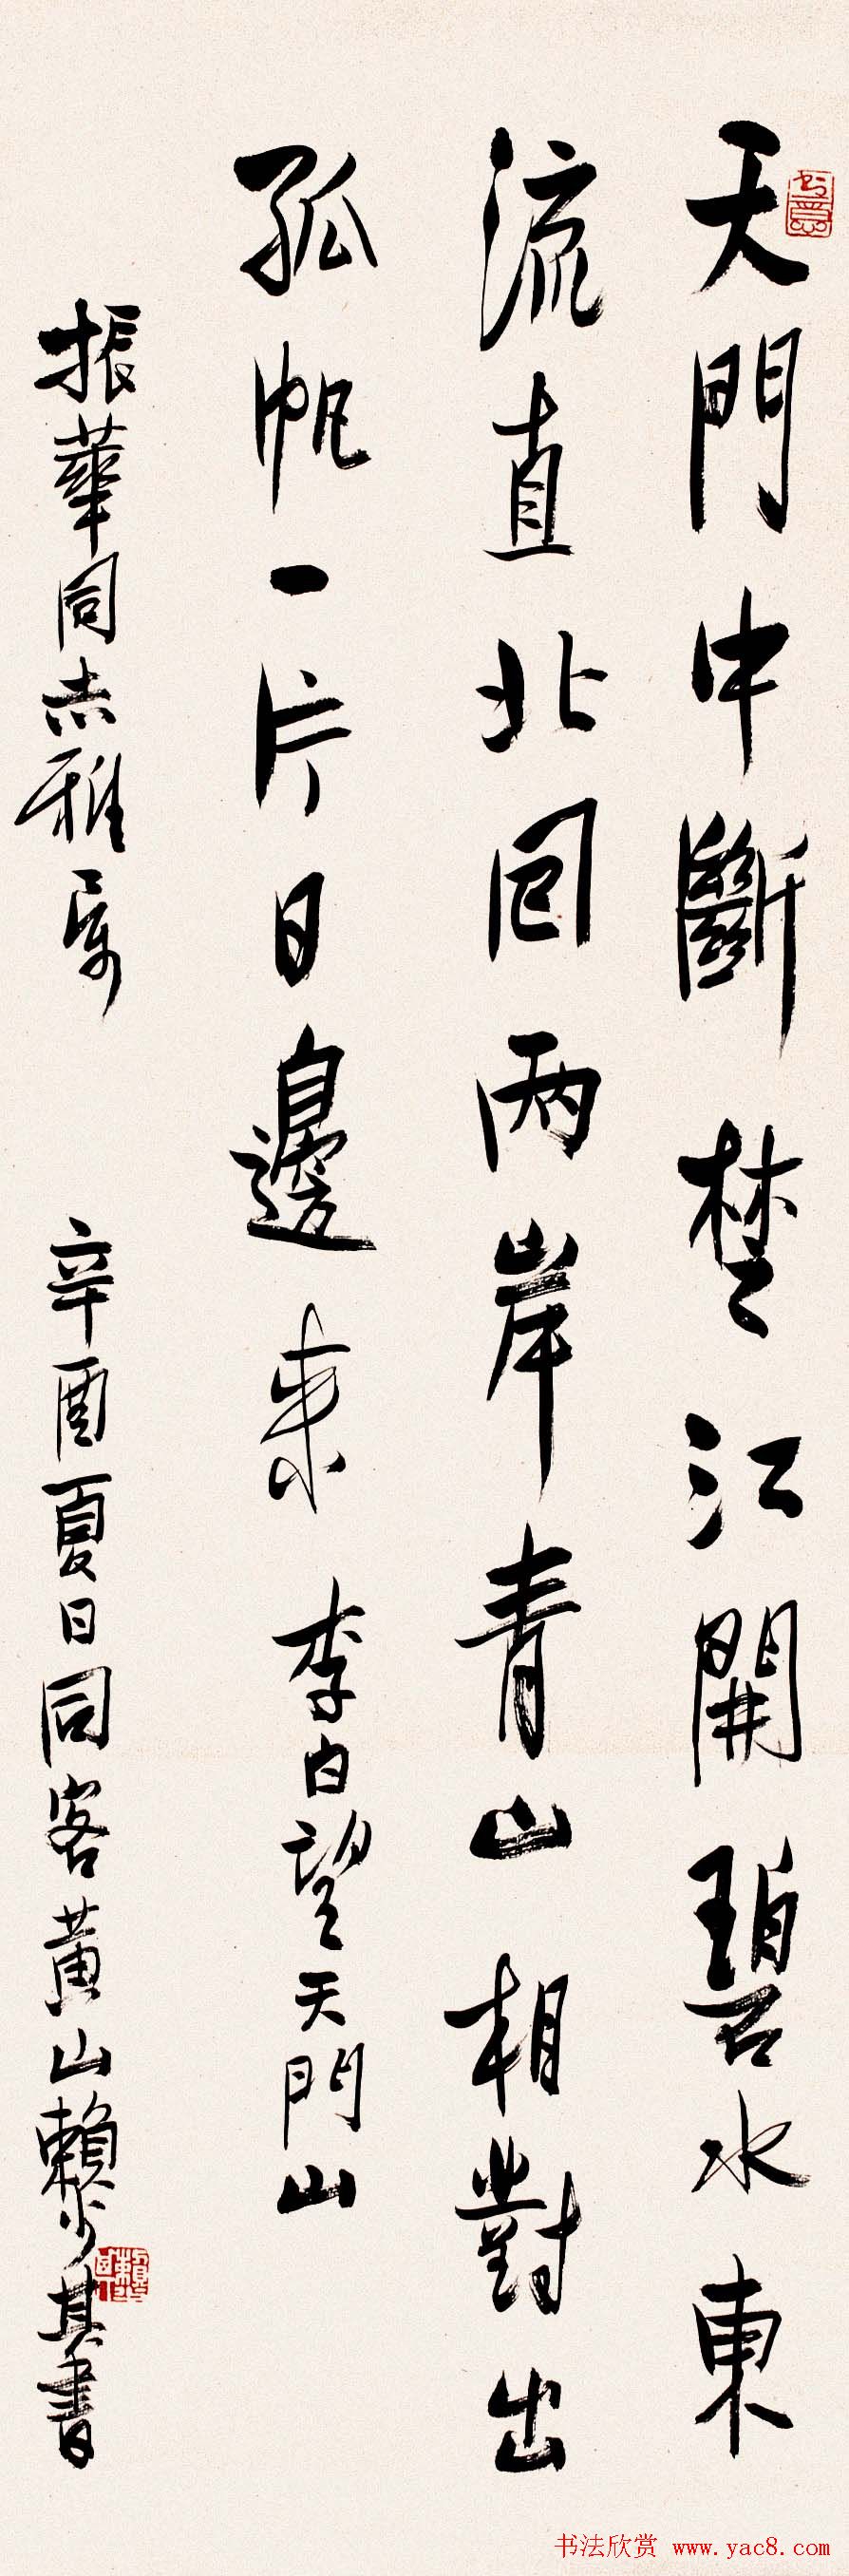 天門中斷楚江開碧水東
流直北回兩岸青山相對出
孤帆一片日邊來 李白望天門山
振華同志雅屬 辛酉夏日同客黃山賴少其書
书法欣赏 www.yac8.com